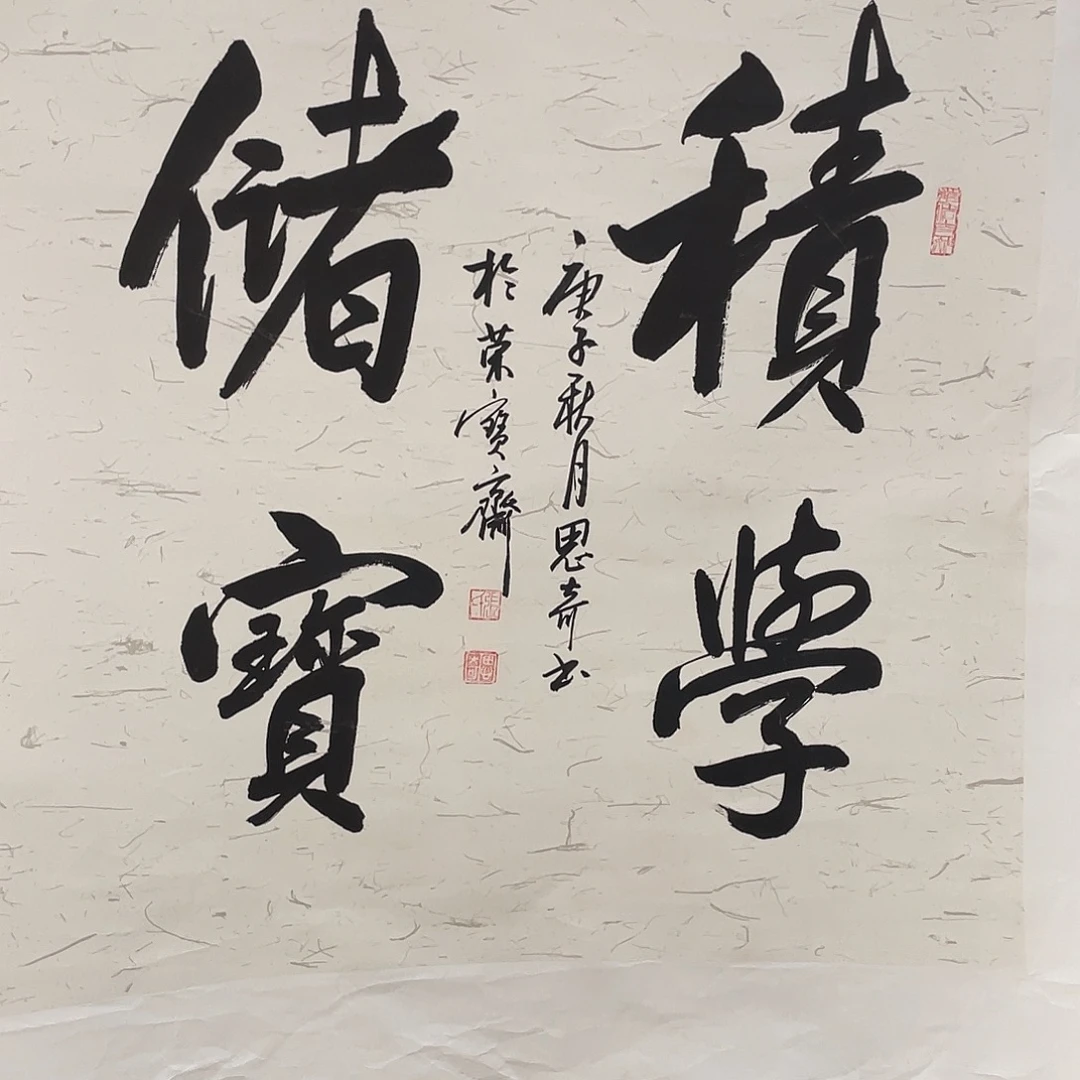 積學
儲寶
庚子秋月思奇书
於荣寶齋